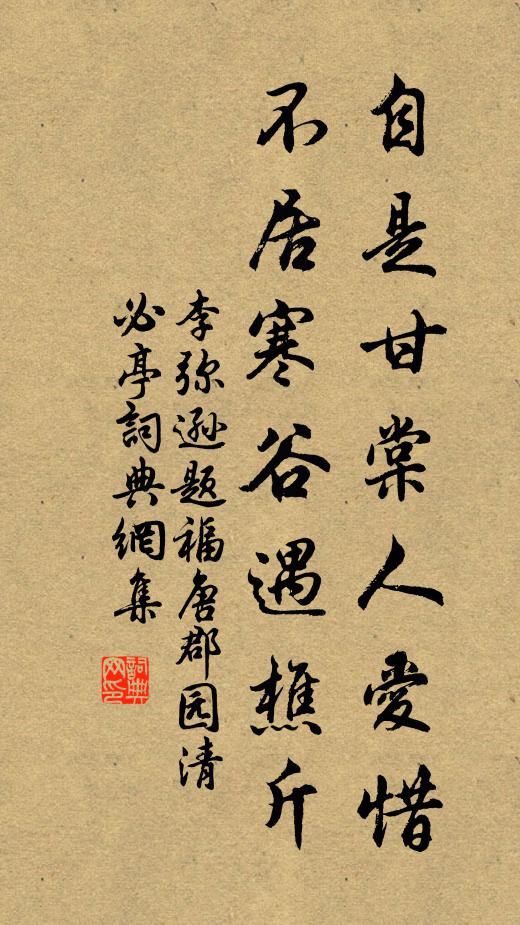 自是甘棠人爱惜
不居寒谷遇樵斤
李弥逊题福唐郡园清
必亭詞典網集
詞典網印